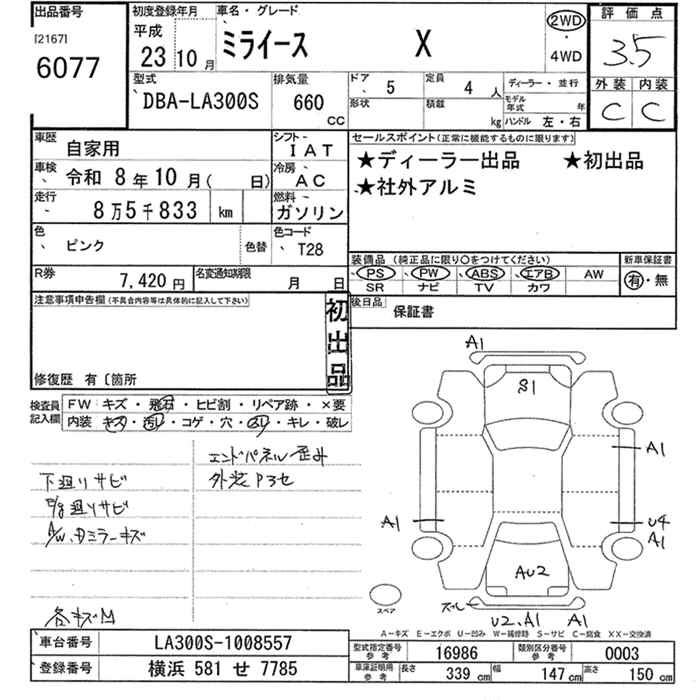 出品番号 初度登録年月 車名・グレード 2WD 評価点
[2167] 平成 ミライース X 3.5
6077 23 10月 4WD
型式 排気量 ドア 5 定員 4人 ディーラー・並行 外装 内装
DBA-LA300S 660 CC 形状 積載 kg モデル年式 年 C C
ハンドル 左・右
車歴 自家用 シフト IAT セールスポイント(正常に機能するものに限ります)
車検 令和 8年10月( 日) 冷房 AC ★ディーラー出品 ★初出品
走行 8万5千833 km 燃料 ガソリン ★社外アルミ
色 ピンク 色替 色コード T28
装備品 (純正品に限り○をつけてください) 新車保証書
R券 7,420円 名変通知期限 月 日 PS PW ABS エアB AW 有・無
SR ナビ TV カワ
注意事項申告欄(不具合内容等は具体的に記入して下さい) 初出品 後日品 保証書
修復歴 有〔箇所
検査員記入欄 FW キズ・飛石・ヒビ割・リペア跡・×要
内装 キズ・汚レ・コゲ・穴・スリ・キレ・破レ
エンドパネル歪み
下廻りサビ 外装Pヨセ
E/g廻りサビ
A/W、Dミラーキズ
各キズM
A1
S1
A1
A1
U4
A1
AU2
ズレ
スペア
U2、A1 A1
A-キズ E-エクボ U-凹み W-補修跡 S-サビ C-腐食 XX-交換済
車台番号 LA300S-1008557 型式指定番号 参考 16986 類別区分番号 参考 0003
登録番号 横浜 581 せ 7785 車庫証明用 参考 長さ 339 cm 幅 147 cm 高さ 150 cm